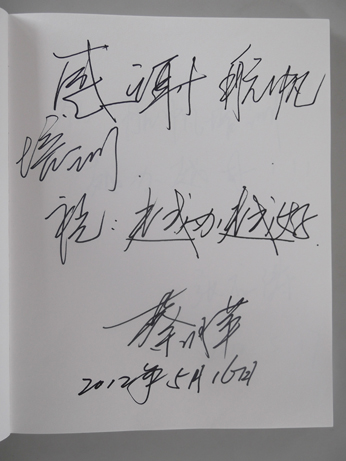 感谢航帆
培训
祝：越办越好
蔡 革
2012年5月16日